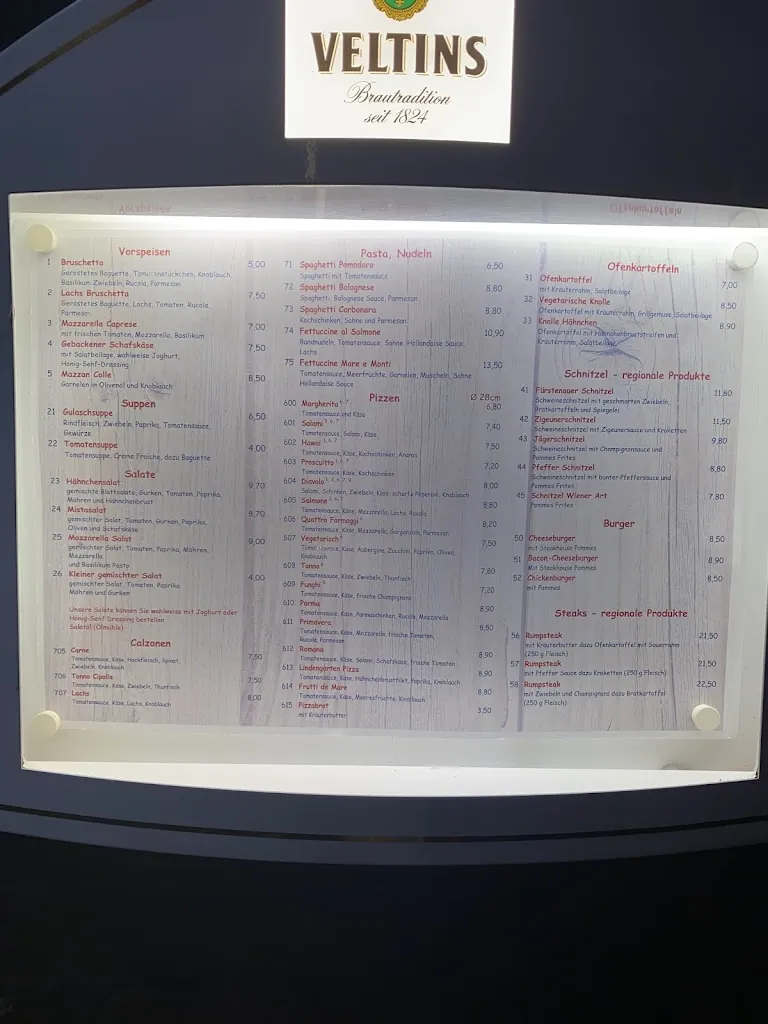 VELTINS
Brautradition
seit 1824
Vorspeisen
1 Bruschetta 5,00
Geröstetes Baguette, Tomatenstückchen, Knoblauch,
Basilikum Zwiebeln, Rucola, Parmesan
2 Lachs Bruschetta 7,50
Geröstetes Baguette, Lachs, Tomaten, Rucola,
Parmesan
3 Mozzarella Caprese 7,00
mit frischen Tomaten, Mozzarella, Basilikum
4 Gebackener Schafskäse 7,50
mit Salatbeilage, wahlweise Joghurt,
Honig-Senf-Dressing
5 Mazzan Colle 8,50
Garnelen in Olivenöl und Knoblauch
Suppen
21 Gulaschsuppe 6,50
Rindfleisch, Zwiebeln, Paprika, Tomatensauce,
Gewürze
22 Tomatensuppe 4,00
Tomatensuppe, Crème Fraîche, dazu Baguette
Salate
23 Hähnchensalat 9,70
gemischte Blattsalate, Gurken, Tomaten, Paprika,
Möhren und Hähnchenbrust
24 Mistasalat 8,70
gemischter Salat, Tomaten, Gurken, Paprika,
Oliven und Schafskäse
25 Mozzarella Salat 9,00
gemischter Salat, Tomaten, Paprika, Möhren,
Mozzarella
und Basilikum Pesto
26 Kleiner gemischter Salat 4,00
gemischter Salat, Tomaten, Paprika
Möhren und Gurken
Unsere Salate können Sie wahlweise mit Joghurt oder
Honig-Senf Dressing bestellen
Salatöl (Ölmühle)
Calzonen
705 Carne 7,50
Tomatensauce, Käse, Hackfleisch, Spinat,
Zwiebeln, Knoblauch
706 Tonno Cipolla 7,50
Tomatensauce, Käse, Zwiebeln, Thunfisch
707 Lachs 8,00
Tomatensauce, Käse, Lachs, Knoblauch
Pasta, Nudeln
71 Spaghetti Pomodoro 6,50
Spaghetti mit Tomatensauce
72 Spaghetti Bolognese 8,80
Spaghetti, Bolognese Sauce, Parmesan
73 Spaghetti Carbonara 8,80
Kochschinken, Sahne und Parmesan
74 Fettuccine al Salmone 10,90
Bandnudeln, Tomatensauce, Sahne, Hollandaise Sauce,
Lachs
75 Fettuccine Mare e Monti 13,50
Tomatensauce, Meerfrüchte, Garnelen, Muscheln, Sahne
Hollandaise Sauce
Pizzen Ø 28cm
600 Margherita 6,80
Tomatensauce und Käse
601 Salami 7,40
Tomatensauce, Salami, Käse
602 Hawai 7,50
Tomatensauce, Käse, Kochschinken, Ananas
603 Proscuitto 7,20
Tomatensauce, Käse, Kochschinken
604 Diavolo 8,00
Salami, Schinken, Zwiebeln, Käse, scharfe Peperoni, Knoblauch
605 Salmone 8,80
Tomatensauce, Käse, Mozzarella, Lachs, Rucola
606 Quattro Formaggi 8,20
Tomatensauce, Käse, Mozzarella, Gorgonzola, Parmesan
607 Vegetarisch 7,50
Tomatensauce, Käse, Aubergine, Zucchini, Paprika, Oliven,
Knoblauch
608 Tonno 7,80
Tomatensauce, Käse, Zwiebeln, Thunfisch
609 Funghi 7,20
Tomatensauce, Käse, frische Champignons
610 Parma 8,90
Tomatensauce, Käse, Parmaschinken, Rucola, Mozzarella
611 Primavera 8,50
Tomatensauce, Käse, Mozzarella, frische Tomaten,
Rucola, Parmesan
612 Romana 8,90
Tomatensauce, Käse, Salami, Schafskäse, frische Tomaten
613 Lindengarten Pizza 8,90
Tomatensauce, Käse, Hähnchenbrustfilet, Paprika, Knoblauch
614 Frutti de Mare 8,80
Tomatensauce, Käse, Meeresfrüchte, Knoblauch
615 Pizzabrot 3,50
mit Kräuterbutter
Ofenkartoffeln
31 Ofenkartoffel 7,00
mit Kräuterrahm, Salatbeilage
32 Vegetarische Knolle 8,50
Ofenkartoffel mit Kräuterrahm, Grillgemüse, Salatbeilage
33 Knolle Hähnchen 8,90
Ofenkartoffel mit Hähnchenbruststreifen und
Kräuterrahm, Salatbeilage
Schnitzel - regionale Produkte
41 Fürstenauer Schnitzel 11,80
Schweineschnitzel mit geschmorten Zwiebeln,
Bratkartoffeln und Spiegelei
42 Zigeunerschnitzel 11,50
Schweineschnitzel mit Zigeunersauce und Kroketten
43 Jägerschnitzel 9,80
Schweineschnitzel mit Champignonsauce und
Pommes Frites
44 Pfeffer Schnitzel 8,80
Schweineschnitzel mit bunter Pfeffersauce und
Pommes Frites
45 Schnitzel Wiener Art 7,80
Pommes Frites
Burger
50 Cheeseburger 8,50
mit Steakhouse Pommes
51 Bacon-Cheeseburger 8,90
Mit Steakhouse Pommes
52 Chickenburger 8,50
mit Pommes
Steaks - regionale Produkte
56 Rumpsteak 21,50
mit Kräuterbutter dazu Ofenkartoffel mit Sauerrahm
(250 g Fleisch)
57 Rumpsteak 21,50
mit Pfeffer Sauce dazu Kroketten (250 g Fleisch)
58 Rumpsteak 22,50
mit Zwiebeln und Champignons dazu Bratkartoffel
(250 g Fleisch)